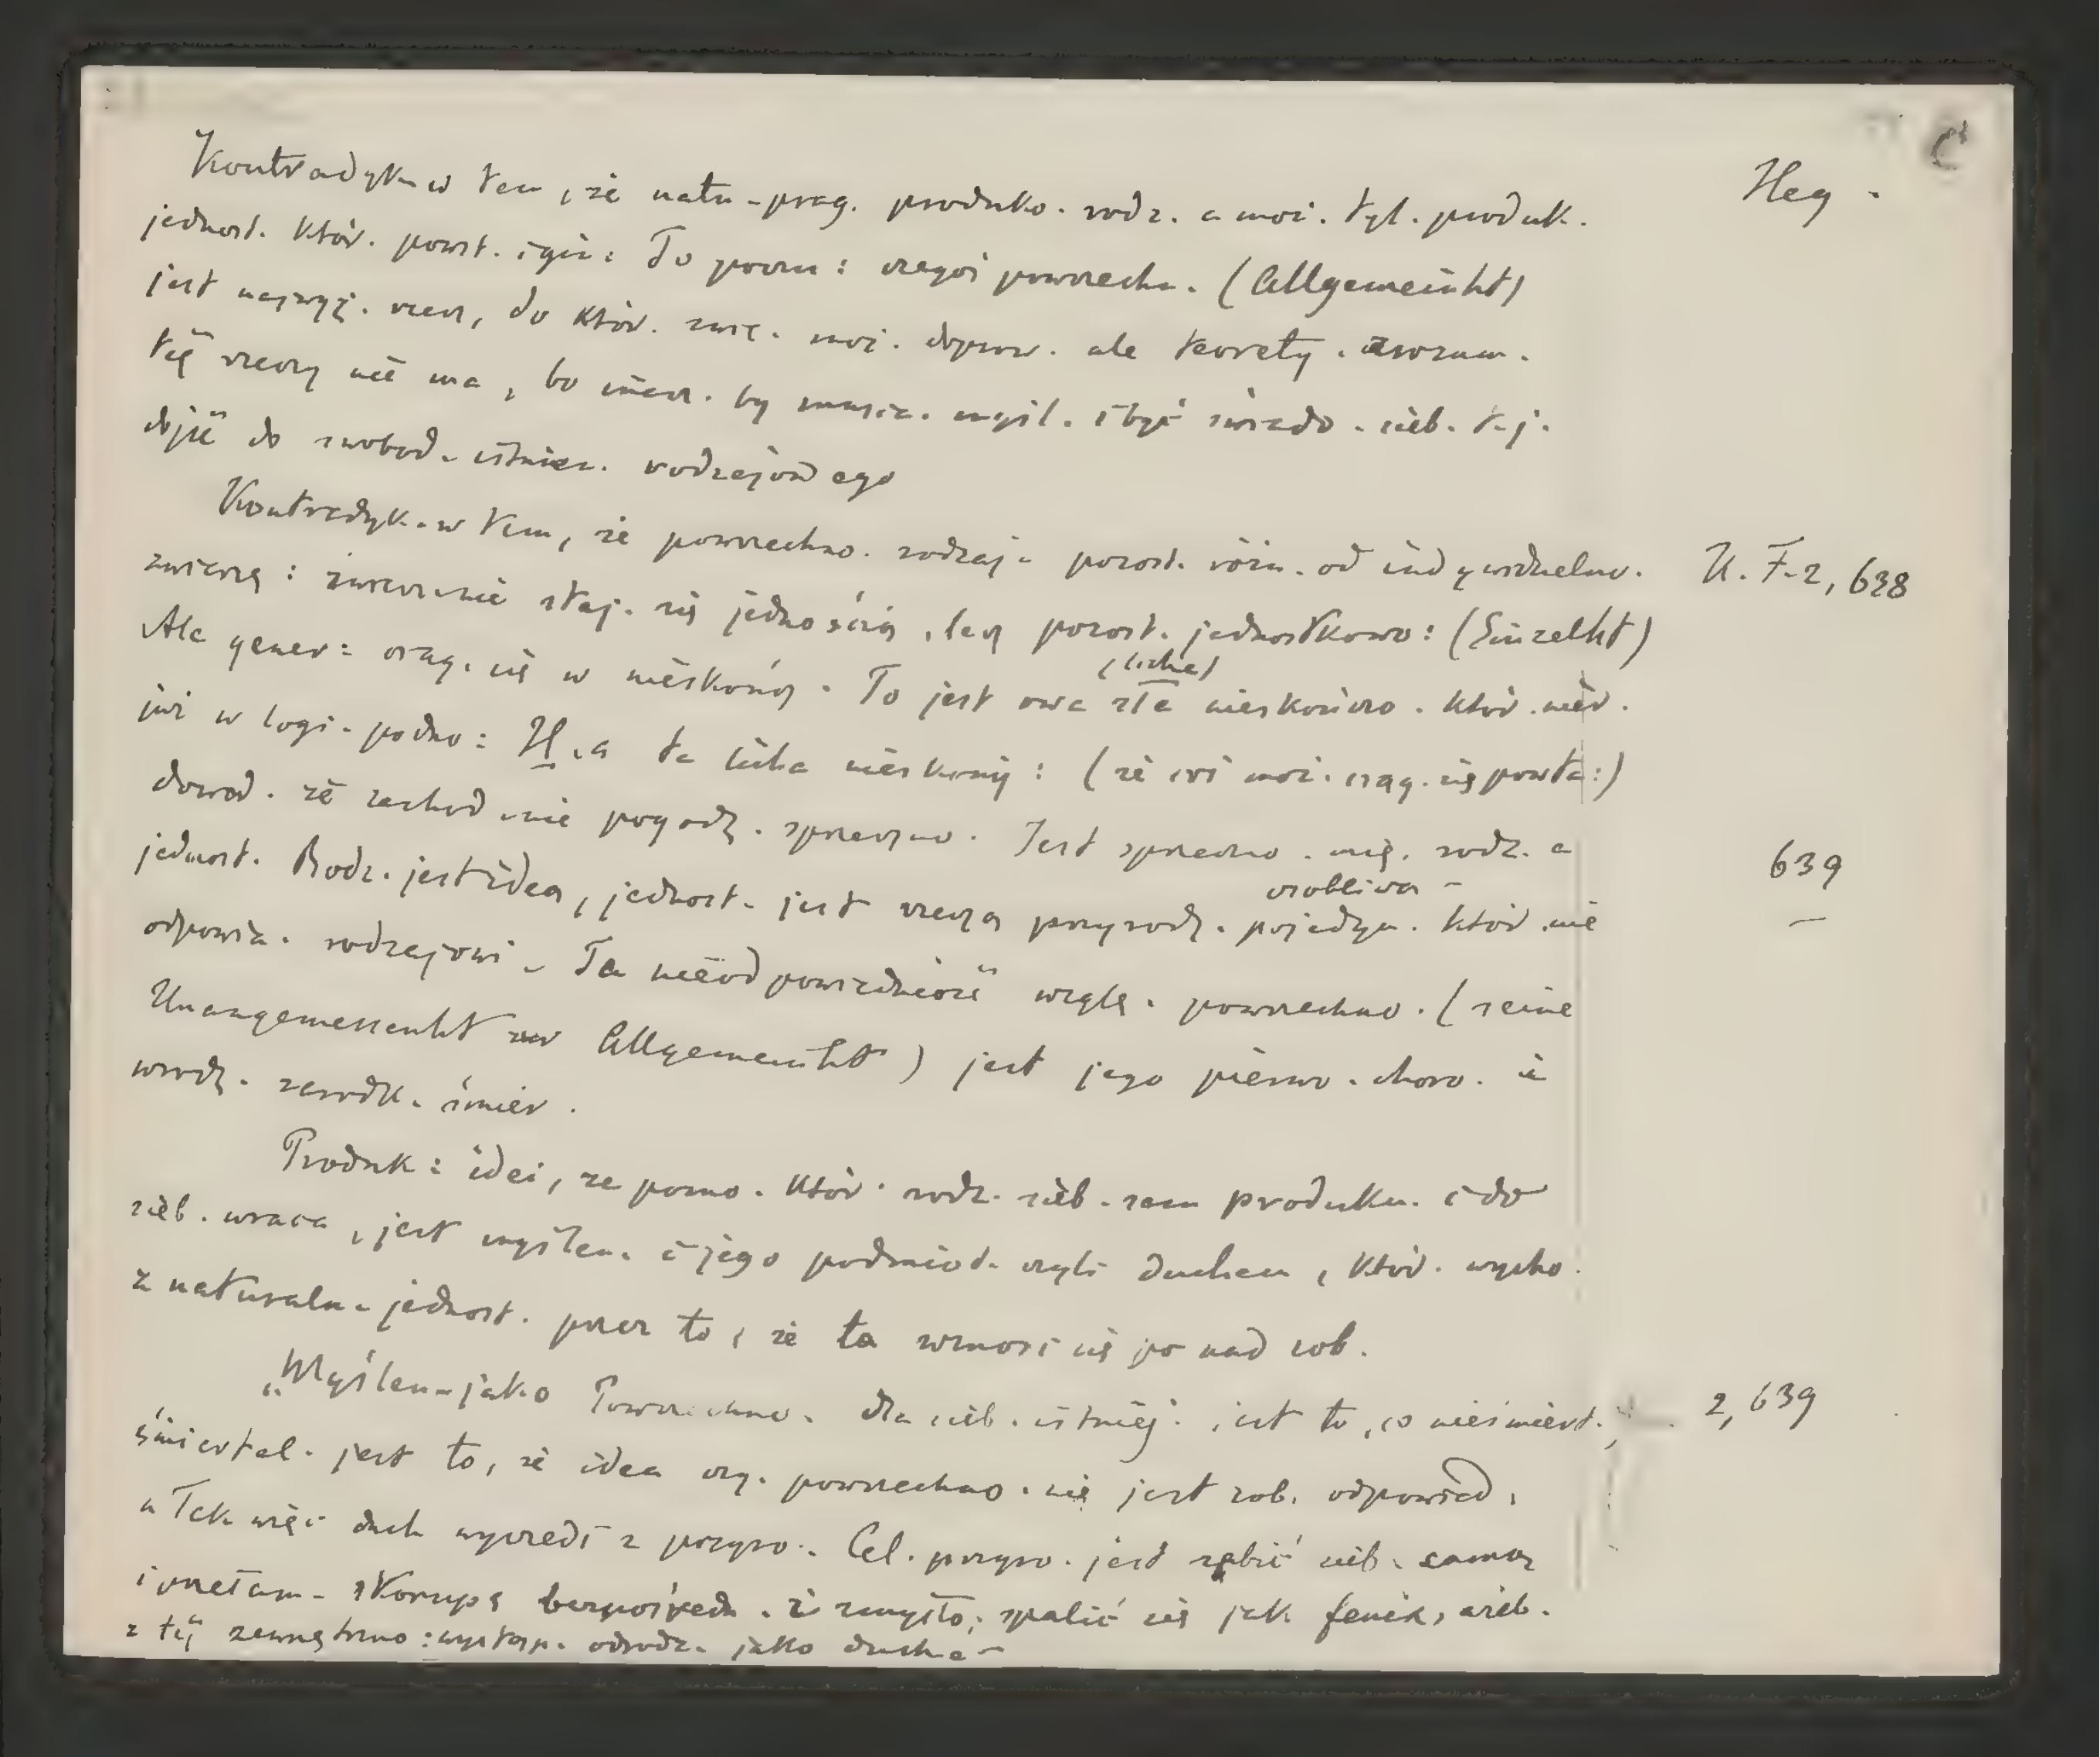 Kontradyk. w tem, że natu. prag. produko. rodz. a moż. tyl. produk.
Heg.
C
jednost. któr. powst. i gin: To pozn: czegoś powszechn. (Allgemeinht)
jest najwyż. rzecz, do któr. zwie. moż. doprow. ale teorety. zrozum.
tej rzeczy nie ma, bo inacz. by musia. myśl. i być świado. sieb. t.j.
dojść do swobod. istnien. rodzajowego
Kontradyk. w tem, że powszechno. rodzaj. pozost. różn. od indywidualno.
K. F. 2, 638
zwierzę: zwierz. nie staj. się jednością, lecz pozost. jednostkowo: (Einzelht)
Ale gener: ciąg. się w nieskończ. To jest owa zła nieskończo. któr. nier.
(licha)
już w logi. podno: H. a ta licha nieskończ: (że coś moż. ciąg. się powta:)
dowod. że zachod. nie pogodz. sprzeczno. Jest sprzeczno. mię. rodz. a
jednost. Rodz. jest ideą, jednost. jest rzeczą przyrodz. pojedyn. któr. nie
osobliwa
639
odpowia. rodzajowi. Ta nieodpowiedniość wzglę. powszechno. (seine
Unangemessenht zur Allgemeinht) jest jego pierwo. choro. i
wrodz. zarodk. śmier.
Produk: idei, za pomo. któr. rodz. sieb. sam produku. i do
sieb. wraca, jest myślen. i jego podmiot. czyli duchem, któr. wycho.
z naturaln. jednost. przez to, że ta wznosi się po nad sob.
„Myślen. jako Powszechno. dla sieb. istniej. jest to, co nieśmiert.,
2, 639
śmiertel. jest to, że idea czy. powszechno. nie jest sob. odpowied.
„Tak więc duch wyszedł z przyro. Cel. przyro. jest zabić sieb. samą
i przełam. skorupę bezpośredn. i zmysło; spalić się jak fenix, ażeb.
z tej zewnętrzno: wystąp. odrodz. jako duch.